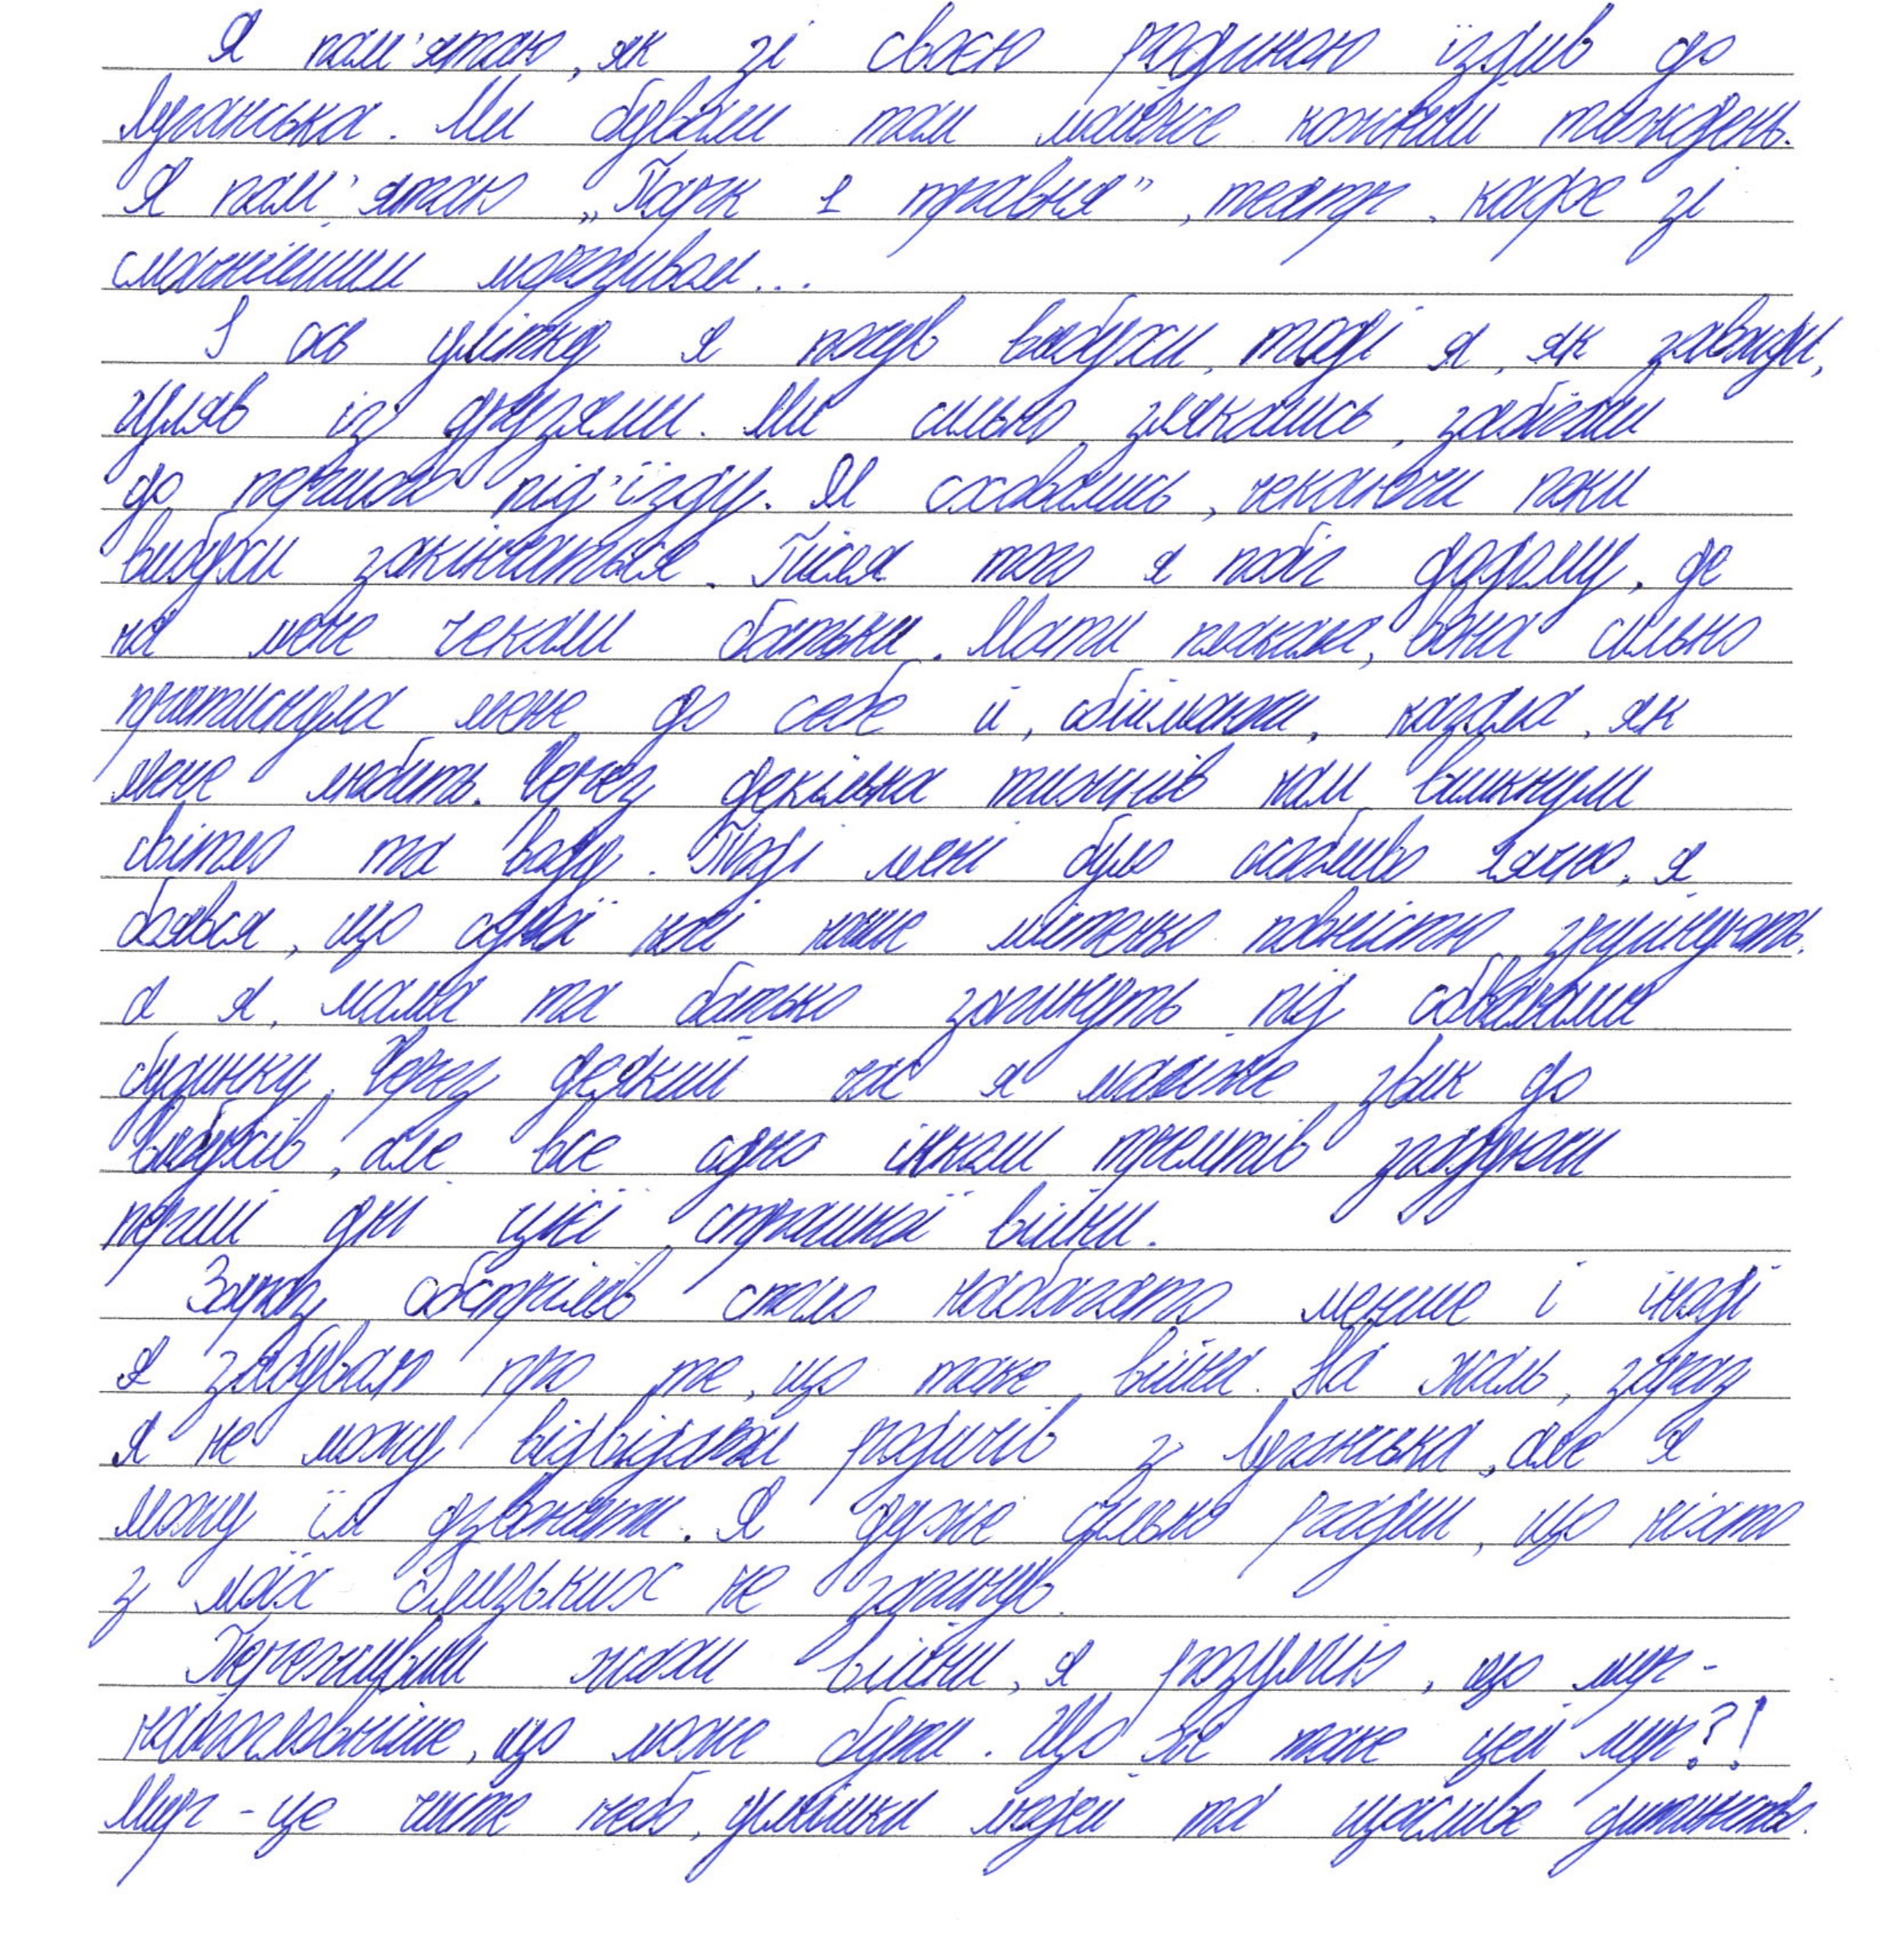 Я пам'ятаю, як зі своєю родиною їздив до
Луганська. Ми бували там майже кожний тиждень.
Я пам'ятаю „Парк 1 травня", театр, кафе зі
смачнішим морозивом...
І ось улітку я почув вибухи, тоді я, як завжди,
гуляв із друзями. Ми сильно злякались, забігли
до першого під'їзду. Я сховались, чекаючи поки
вибухи закінчаться. Після того я побіг додому, де
на мене чекали батьки. Мати плакала, вона сильно
притиснула мене до себе й, обіймаючи, казала, як
мене любить. Через декілька тижнів нам вимкнули
світло та воду. Тоді мені було особливо лячно, я
боявся, що однієї ночі наше містечко повністю зруйнують,
а я, мама та батько загинуть під обвалами
будинку. Через деякий час я майже звик до
вибухів, але все одно інколи тремтів згадуючи
перші дні цієї страшної війни.
Зараз обстрілів стало набагато менше і іноді
я забуваю про те, що таке війна. На жаль, зараз
я не можу відвідати родичів з Луганська, але я
можу їм дзвонити. Я дуже сильно радий, що ніхто
з моїх близьких не загинув.
Переживши жахи війни, я розумію, що мир -
найголовніше, що може бути. Що ж таке цей мир?!
Мир - це чисте небо, усмішки людей та щасливе дитинство.